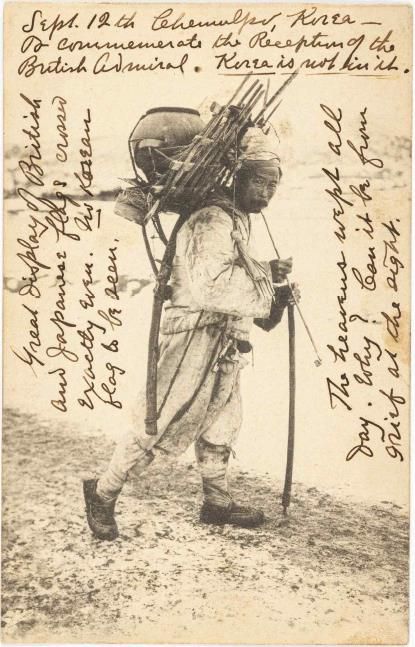 Sept. 12th Chemulpo, Korea –
To commemorate the Reception of the
British Admiral. Korea is not in it.
Great display of British
and Japanese flags crossed
exactly even. No Korean
flag to be seen.
The heavens wept all
day. Why? Can it be from
grief at the sight.